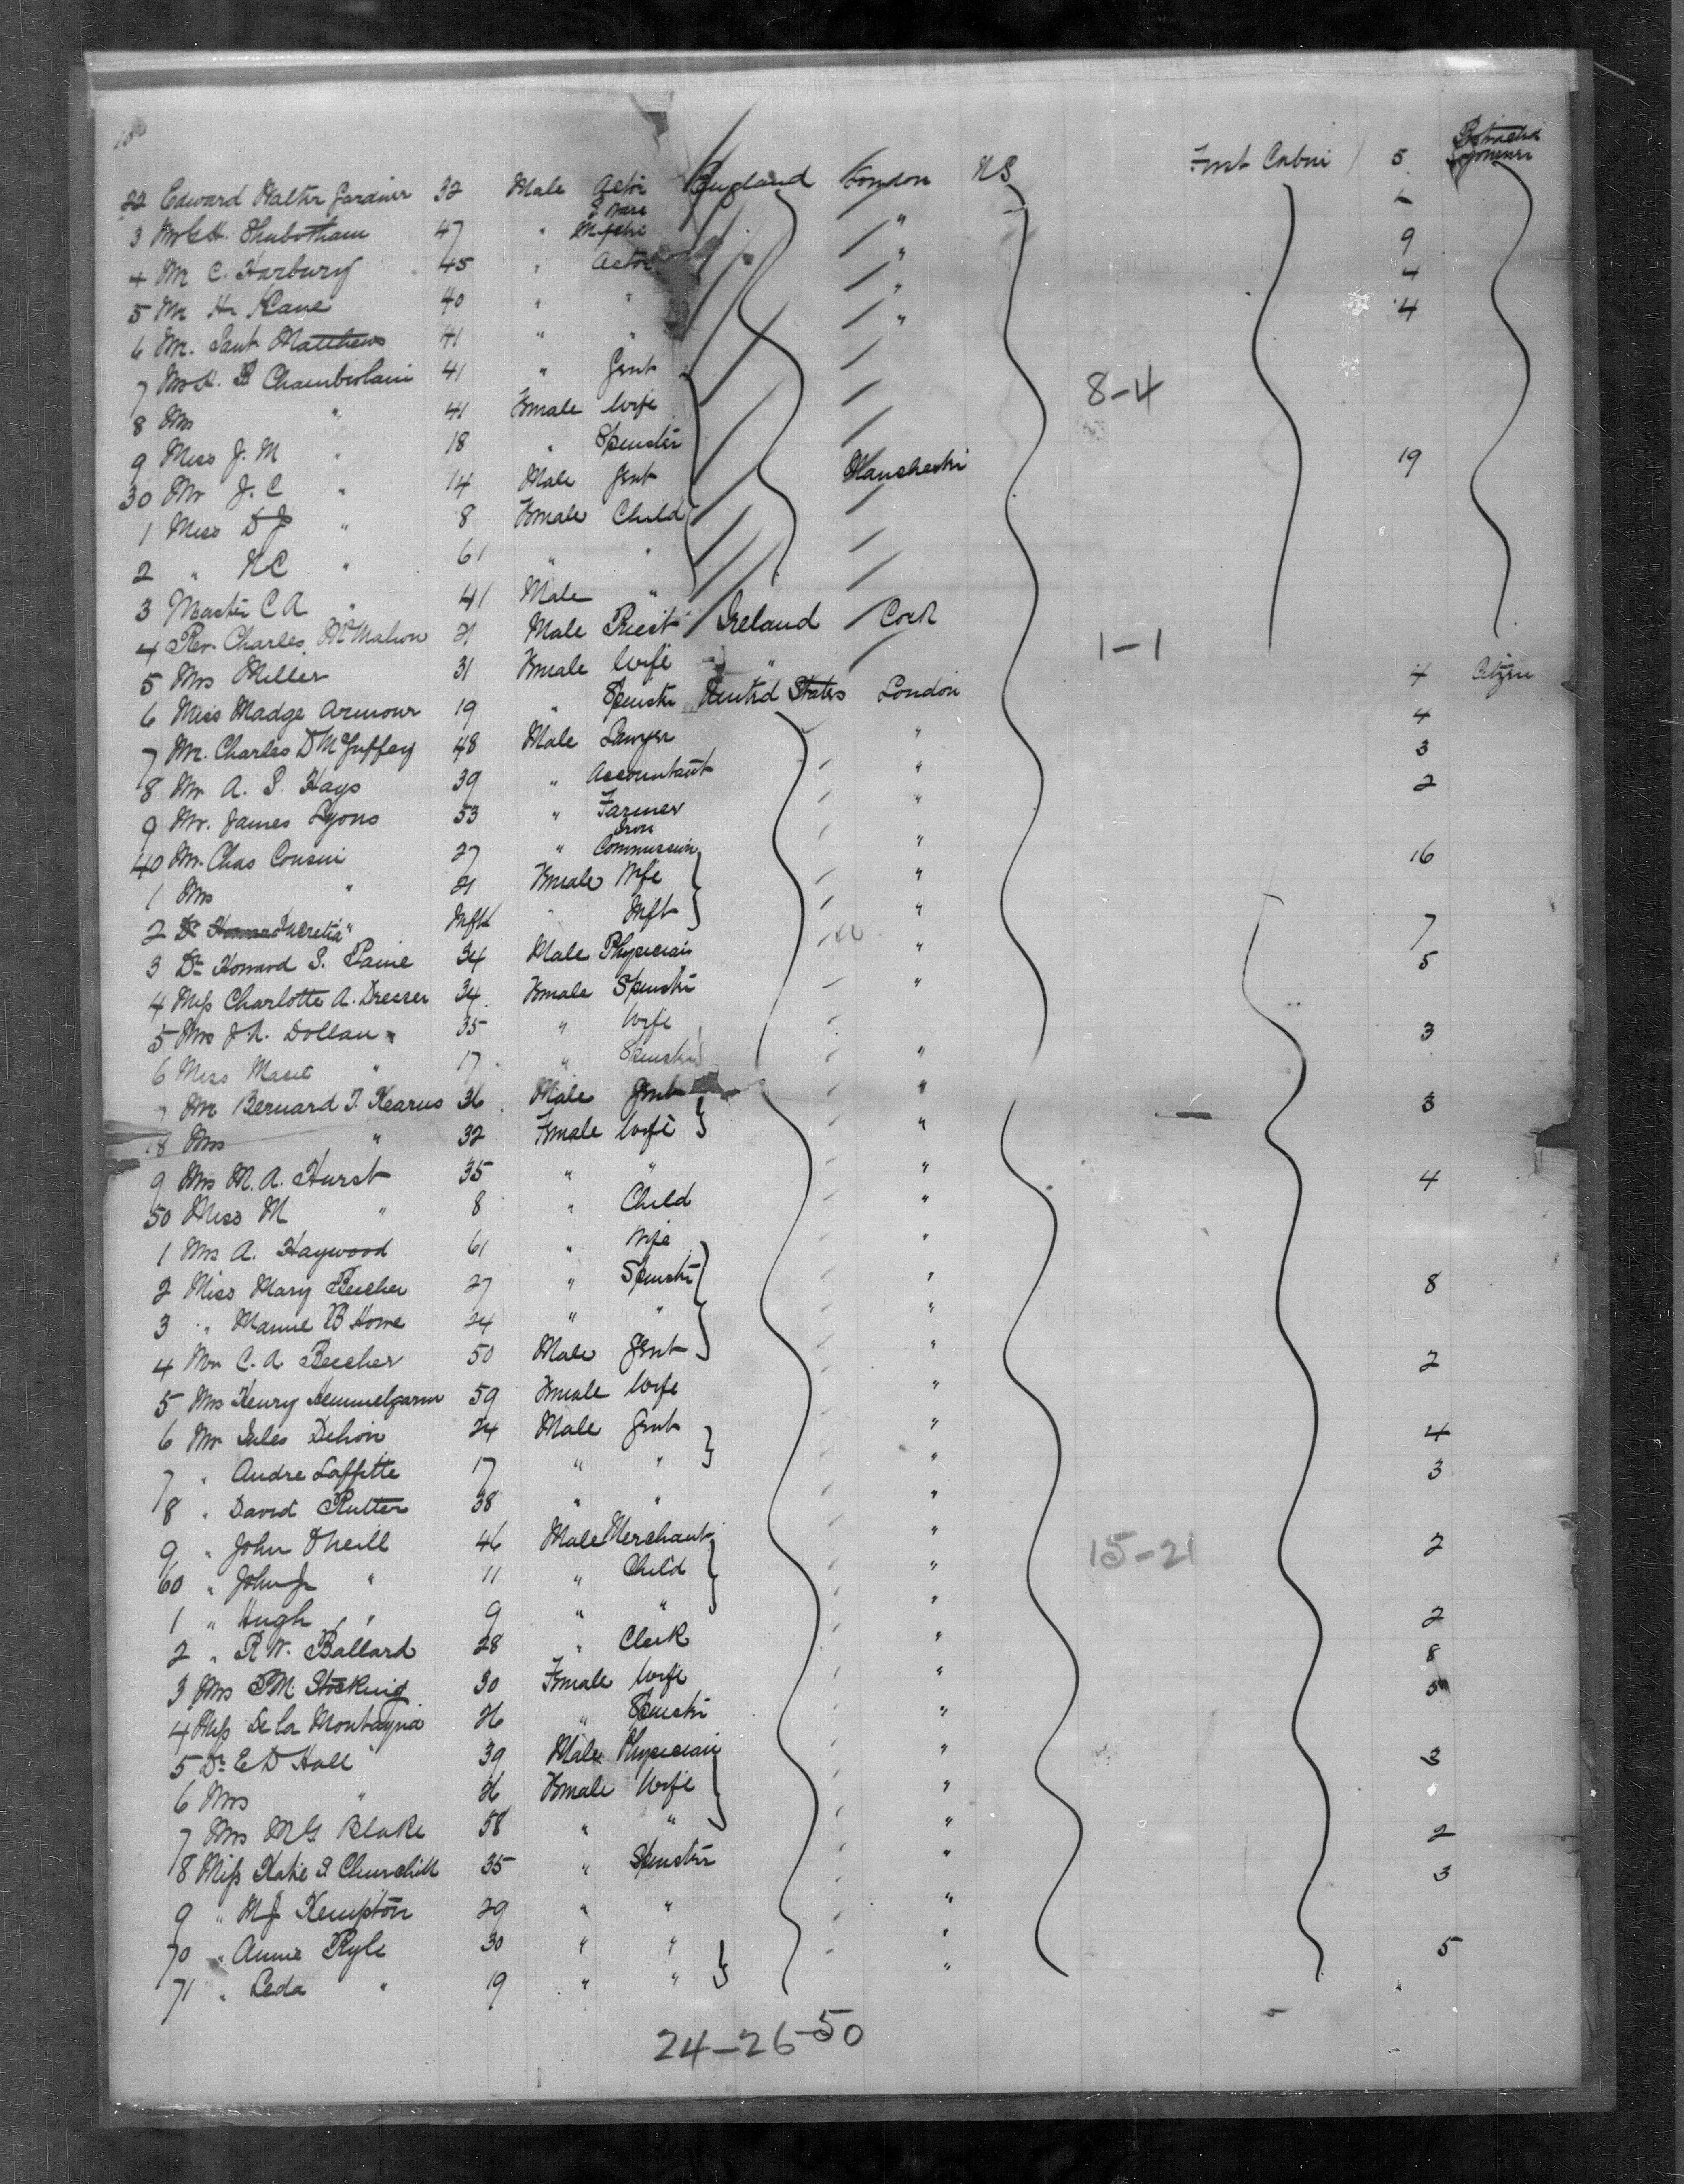 22 Edward Walter Gardiner 32 Male Actor England London US First Cabin 5 Protracted Sojourn
3 Mr C H. Shubotham 47 " "
4 Mr C. Harbury 45 " Actor " 9
5 Mr H. Kane 40 " " " 4
6 Mr. Matthews 41 " " " 4
7 Mr A. B Chamberlain 41 " Gent
8 Mrs " 41 Female Wife 8-4
9 Miss J. M " 18 " Spinster
30 Mr J. C " 14 Male Gent Manchester 19
1 Miss D J " 8 Female Child
2 " N C " 6 " "
3 Master C A " 4 Male "
4 Rev. Charles McMahon 21 Male Priest Ireland Cork
5 Mrs Miller 31 Female Wife " 1-1
6 Miss Madge Armour 19 " Spinster United States London 4 Citizen
7 Mr. Charles D McGuffey 48 Male Lawyer " 4
8 Mr A. S. Hays 39 " Accountant " 3
9 Mr. James Lyons 53 " Farmer " 2
40 Mr. Chas Cousin 27 " Iron Commission "
1 Mrs " 21 Female Wife " 16
2 Lucretia " Infts " Inft "
3 Dr Howard S. Paine 34 Male Physician " 7
4 Miss Charlotte A. Dresser 34 Female Spinster " 5
5 Mrs J. A. Dollan 35 " Wife
6 Miss " 17 " Spinster " 3
7 Mr Bernard T. Kearns 36 Male Gent "
8 Mrs " 32 Female Wife " 3
9 Mrs M. A. Hurst 35 " " "
50 Miss M " 8 " Child " 4
1 Mrs A. Haywood 61 " Wife "
2 Miss Mary Beecher 27 " Spinster "
3 " Mamie B Howe 24 " " " 8
4 Mr C. A Beecher 50 Male Gent "
5 Mrs Henry Hemmelgarn 59 Female Wife " 2
6 Mr Jules Dehon 24 Male Gent "
7 " Andre Laffitte 17 " " " 4
8 " David Rutter 38 " " " 3
9 " John O'Neill 46 Male Merchant "
60 " John Jr " 11 " Child " 15-21 2
1 " Hugh " 9 " " "
2 " R W. Ballard 28 " Clerk " 2
3 Mrs S M. Stocking 30 Female Wife " 8
4 Miss De la Montagnia 26 " Spinster "
5 Dr E D Hall 39 Male Physician "
6 Mrs " 36 Female Wife " 3
7 Mrs M G Blake 58 " " "
8 Miss Katie S Churchill 35 " Spinster " 2
9 " M J Kempton 29 " " " 3
70 " Annie Ryle 30 " " "
71 " Leda " 19 " " " 5
24-26-50